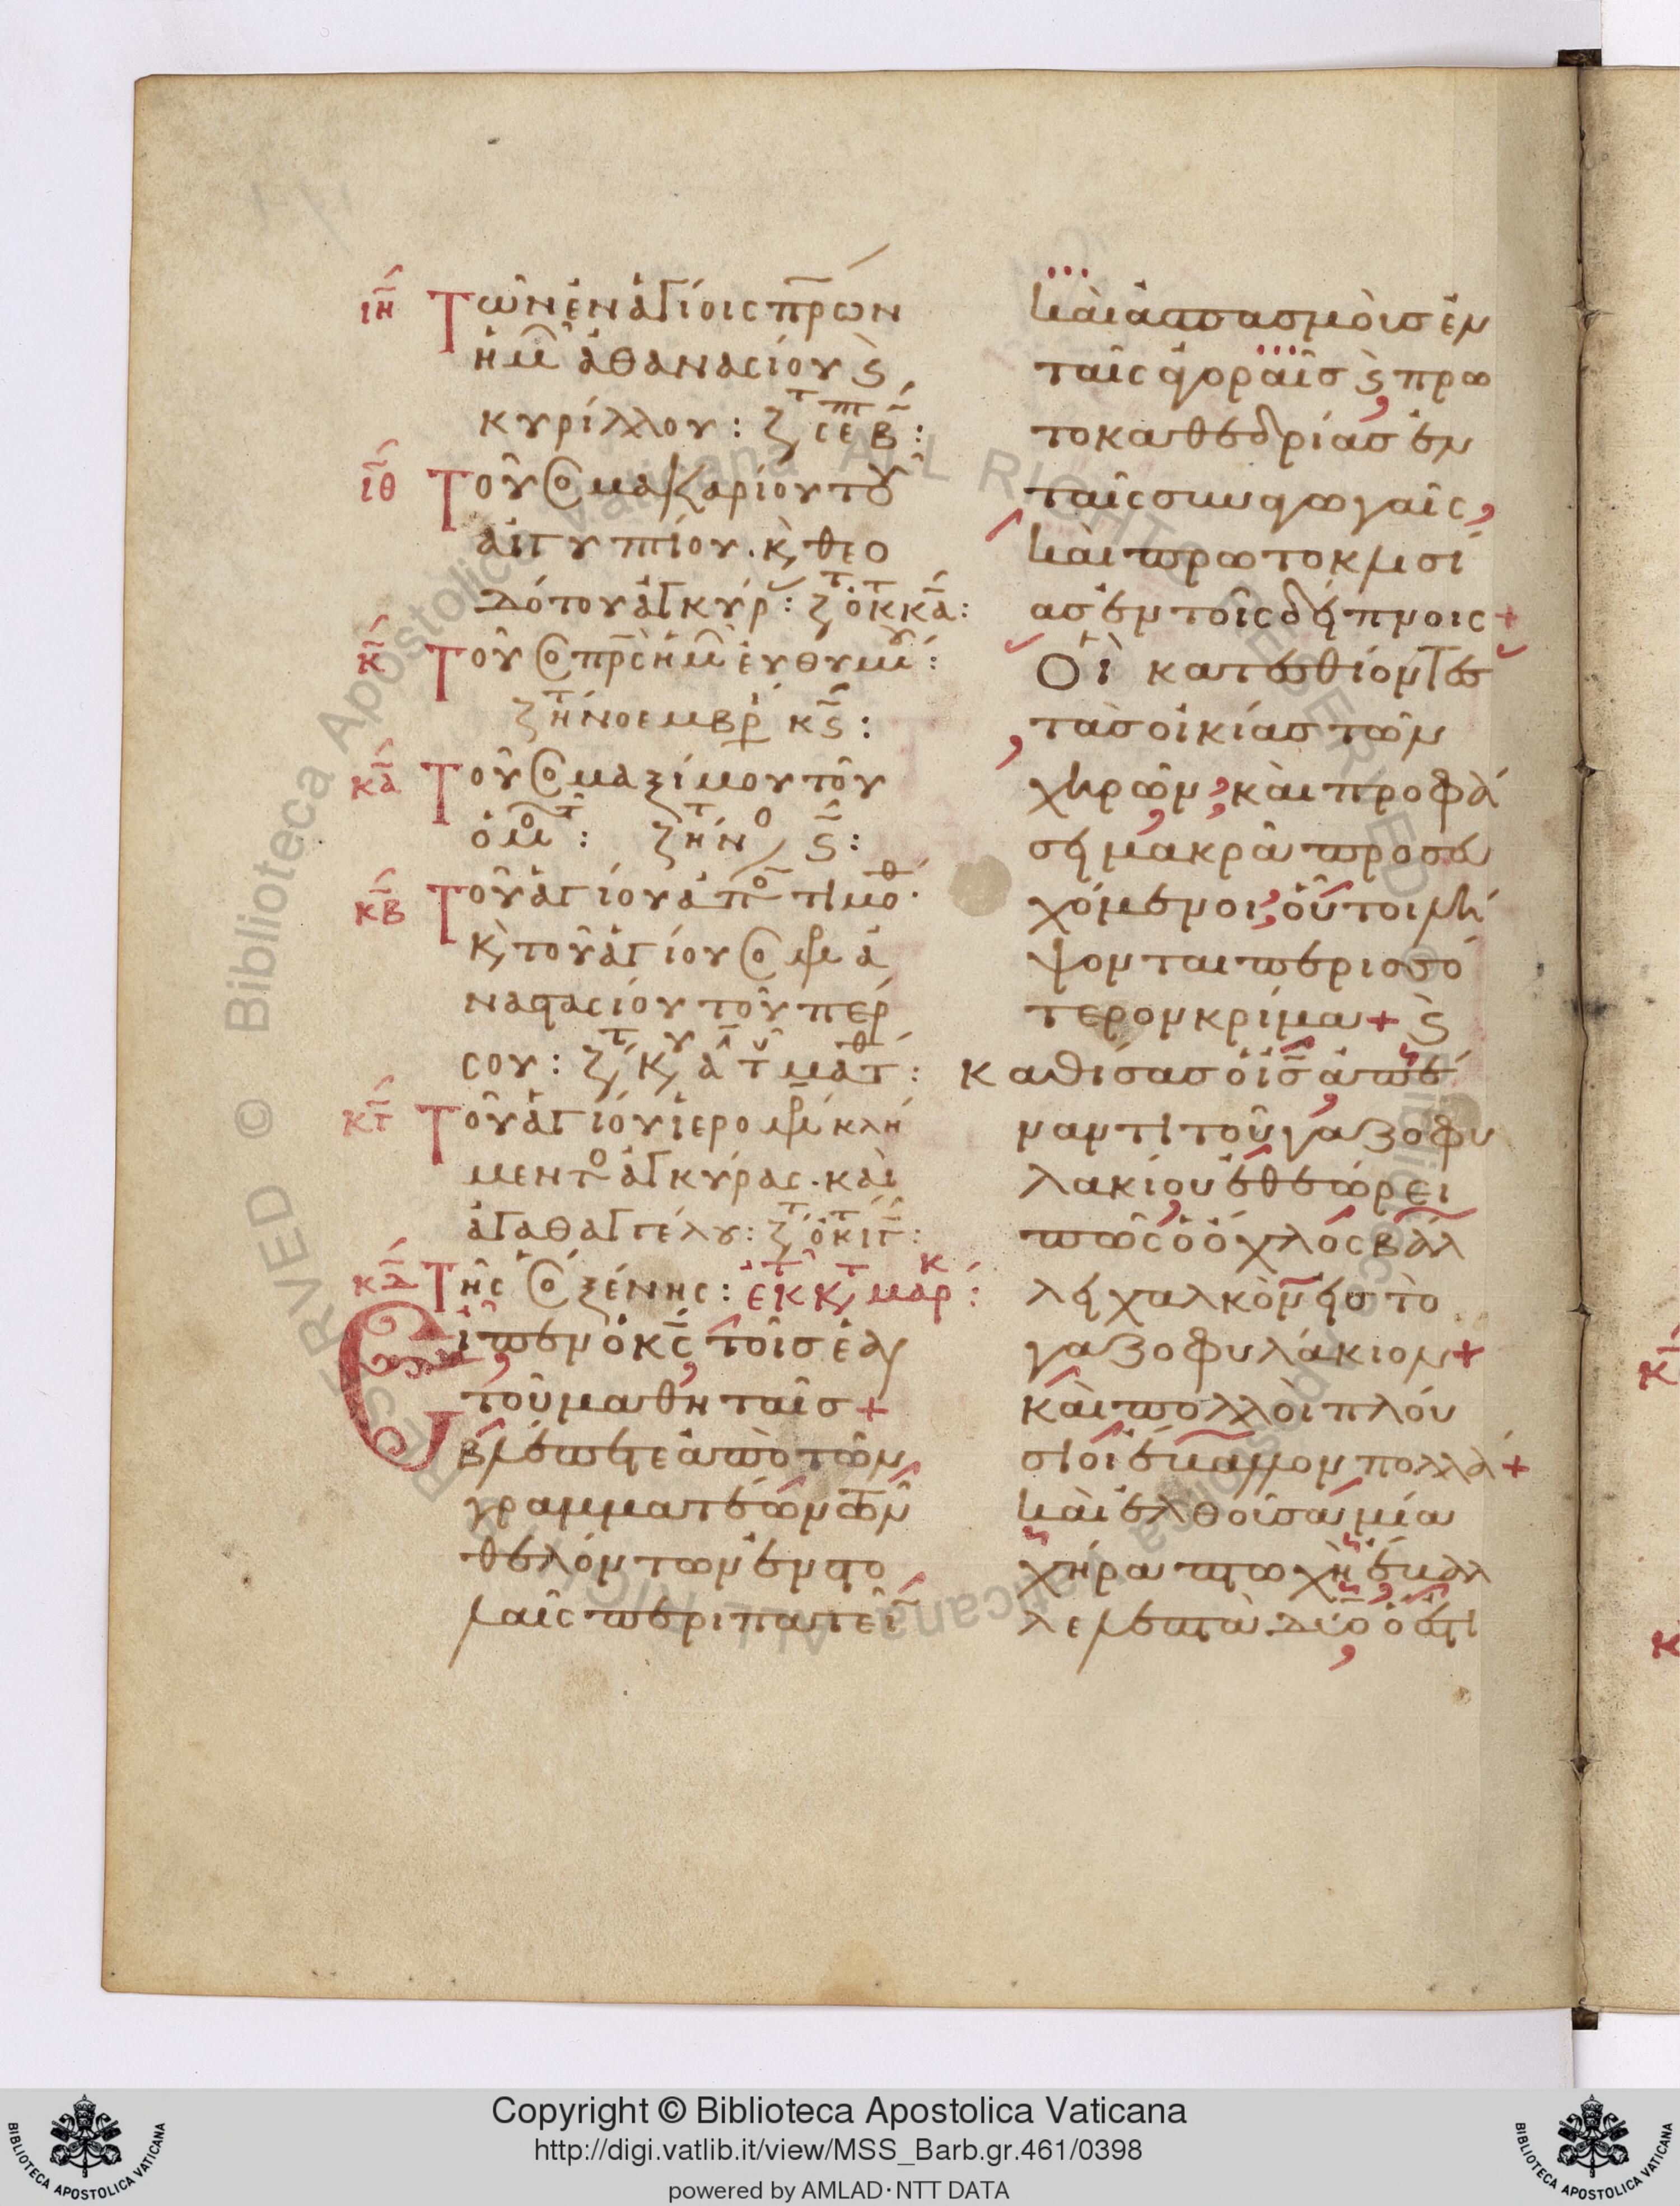 ιη Τῶν ἐν ἁγίοις πρων
ἡμ ἀθανασίου ϛ
κυρίλλου: ζ σεβ:
ιθ Τοῦ ὁ μακαρίου τοῦ
ἀιγυπτίου. κ θεο
δότου ἀγκύρ: ζ ὀκ κα:
κ Τοῦ ὁ πρς ἡμ ἐυθυμ:
ζη νοεμβρ κϛ:
κα Τοῦ ὁ μαξίμου τοῦ
ὁμ: ζη ν ϛ:
κβ Τοῦ ἁγίου ἀπο τιμοθ.
κ τοῦ ἁγίου ὁ μ ἀ
ναστασίου τοῦ πέρ
σου: ζ κυ α τ ματθ:
κγ Τοῦ ἁγίου ἱερομ κλή
μεντο ἀγκύρας. καὶ
ἀγαθαγγέλου: ζ ὀκ ιγ:
κδ Τῆς ὁ ξένης: ἐκ κυ μαρκ:
Εἶπεν ὁ κς τοῖς ἑαυ
τοῦ μαθηταῖς +
βλέπετε ἀπὸ τῶν
γραμματέων τῶν
θελόντων ἐν στο
λαῖς περιπατεῖ
καὶ ἀσπασμοὺς ἐν
ταῖς ἀγοραῖς ϛ πρω
τοκαθεδρίας ἐν
ταῖς συναγωγαῖς,
καὶ πρωτοκλισί
ας ἐν τοῖς δείπνοις +
Οἱ κατεσθίοντες
τὰς οἰκίας τῶν
χηρῶν, καὶ προφά
σει μακρᾶ προσευ
χόμενοι, οὗτοι λή
ψονται περισσό
τερον κρίμα + ϛ
καθίσας ὁ ις ἀπέ
ναντι τοῦ γαζοφυ
λακίου ἐθεώρει
πῶς ὁ ὄχλος βάλ
λει χαλκὸν εἰς τὸ
γαζοφυλάκιον +
καὶ πολλοὶ πλού
σιοι ἔβαλλον πολλά +
καὶ ἐλθοῦσα μία
χήρα πτωχὴ ἔβαλ
λε λεπτὰ δύο ὅ ἐστι
Copyright © Biblioteca Apostolica Vaticana
http://digi.vatlib.it/view/MSS_Barb.gr.461/0398
powered by AMLAD·NTT DATA